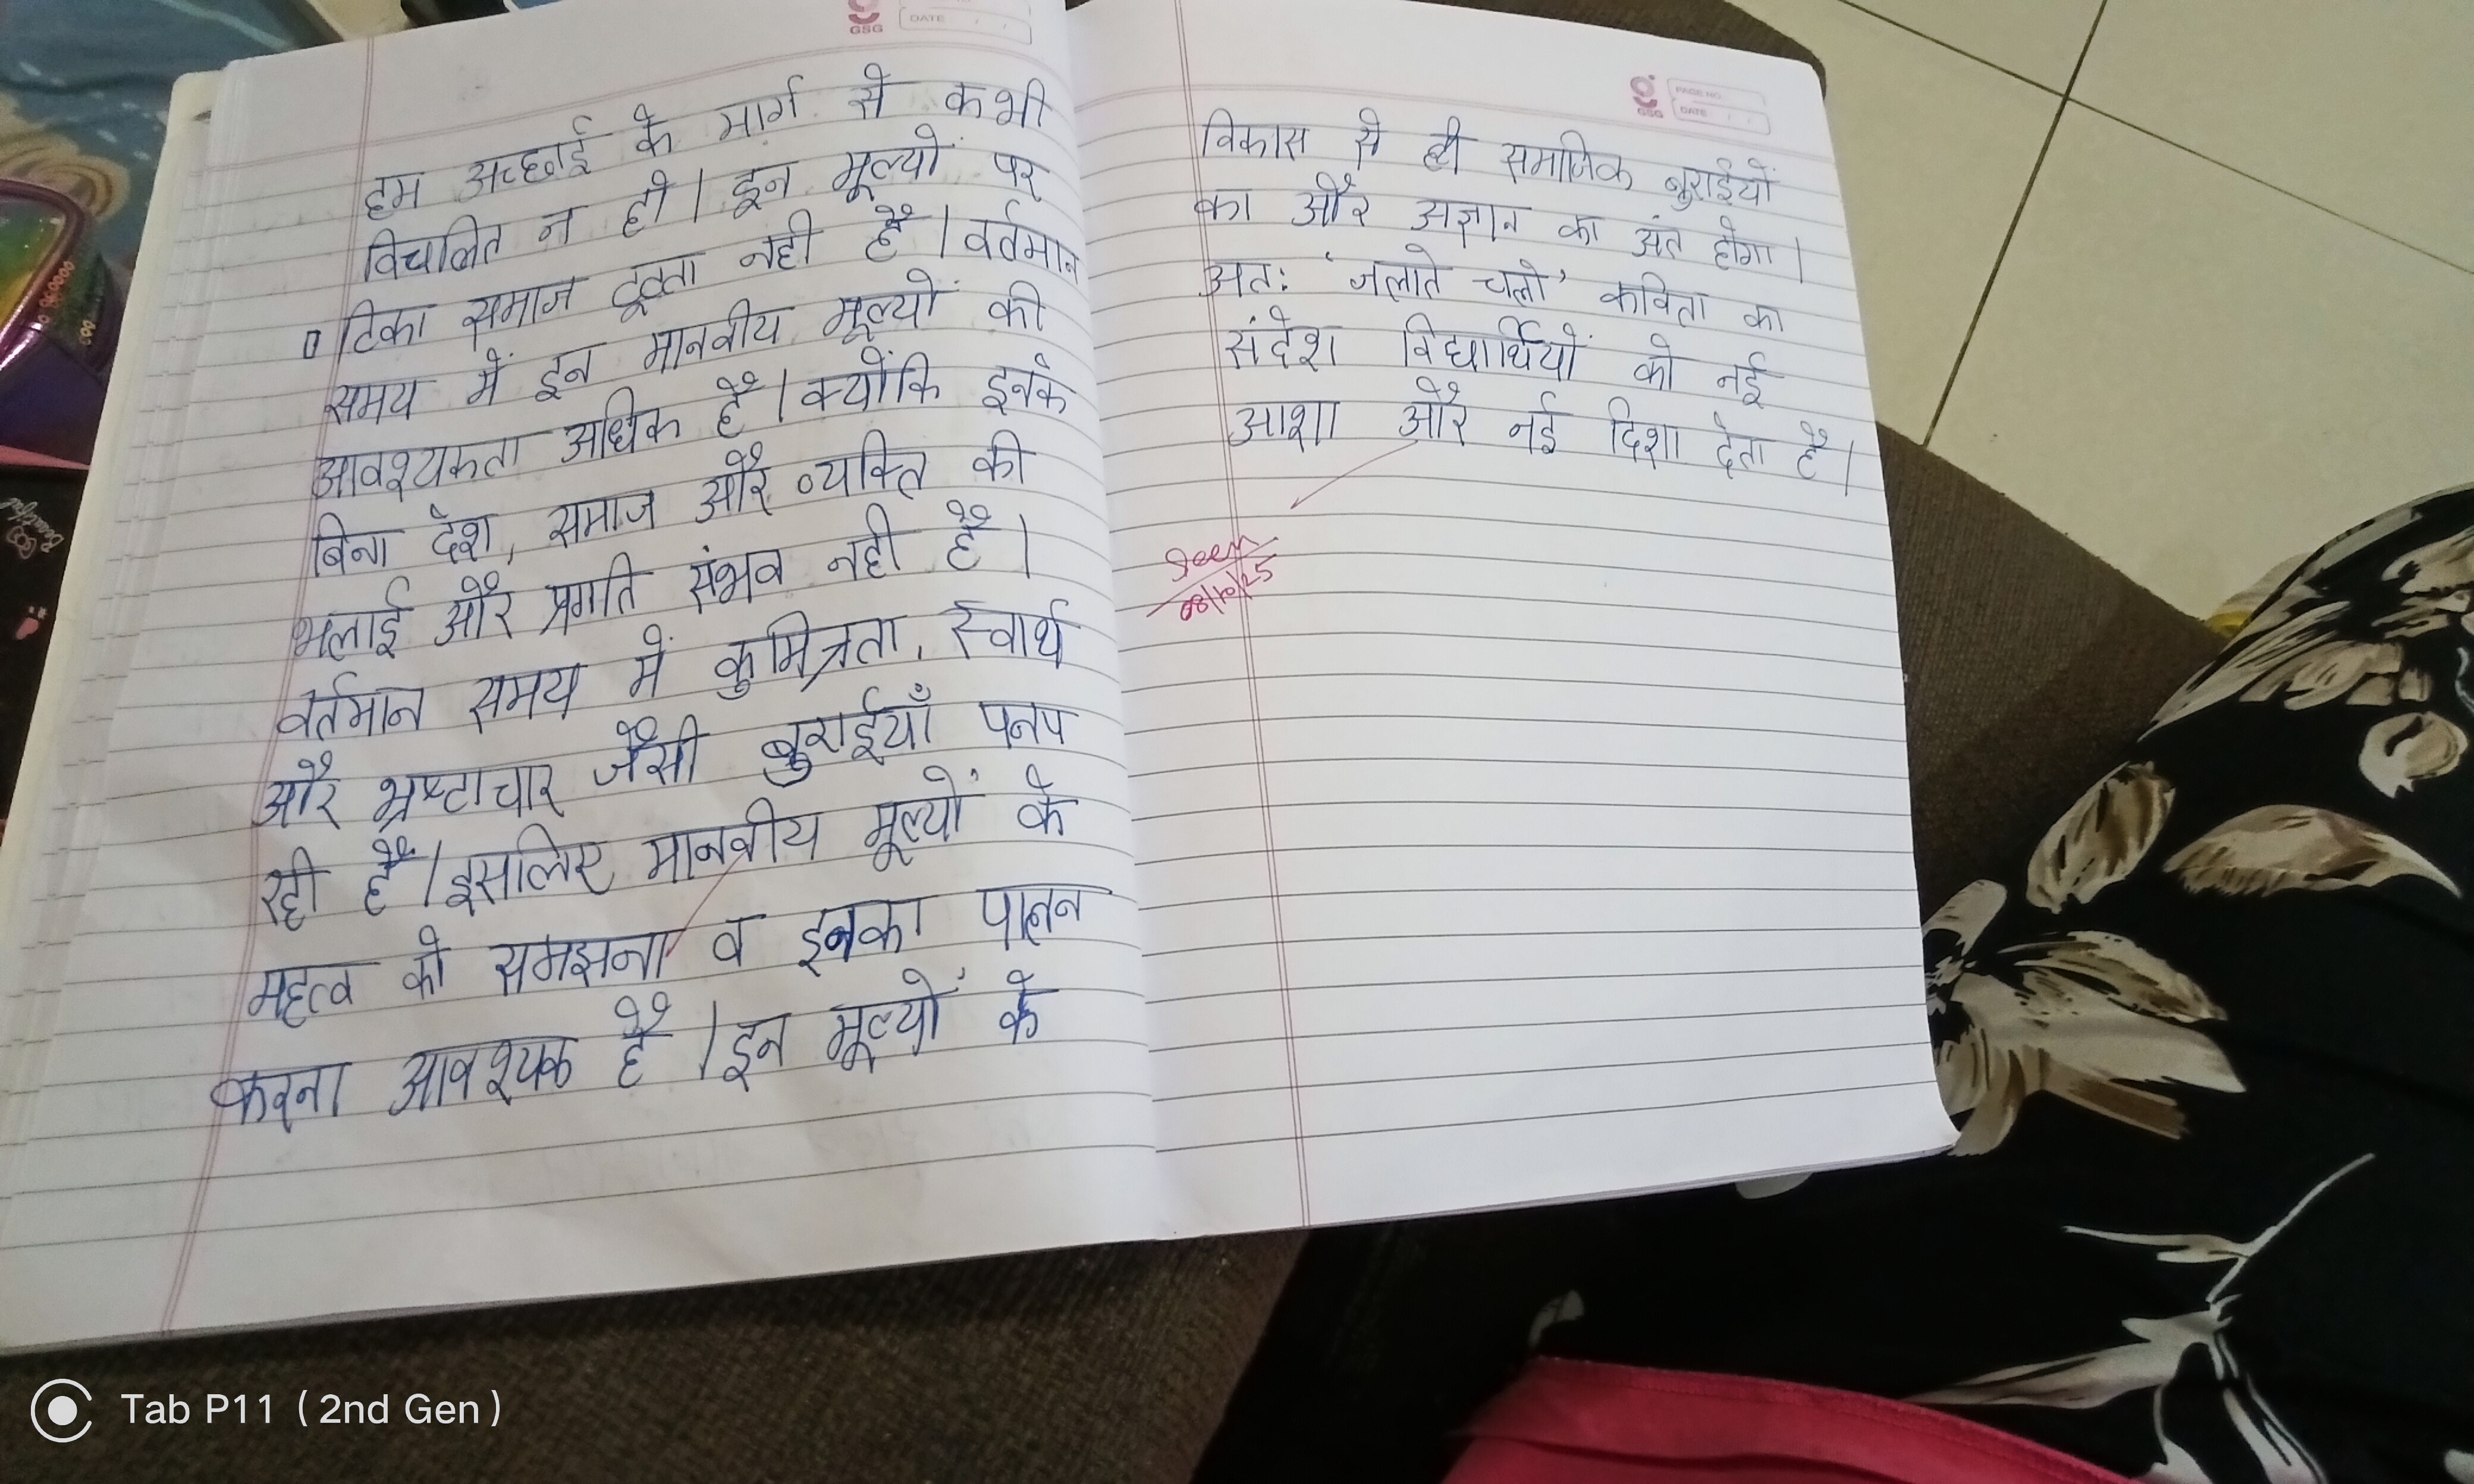 GSG
DATE
हम अच्छाई के मार्ग से कभी
विचलित न हो। इन मूल्यों पर
टिका समाज टूटता नही है। वर्तमान
समय में इन मानवीय मूल्यों की
आवश्यकता अधिक है। क्योंकि इनके
बिना देश, समाज और व्यक्ति की
भलाई और प्रगति संभव नही है।
वर्तमान समय में कुमित्रता, स्वार्थ
और भ्रष्टाचार जैसी बुराईयाँ पनप
रही हैं। इसलिए मानवीय मूल्यों के
महत्व को समझना व इनका पालन
करना आवश्यक है। इन मूल्यों के
GSG
PAGE NO.
DATE
विकास से ही समाजिक बुराईयों
का और अज्ञान का अंत होगा।
अतः 'जलाते चलो' कविता का
संदेश विद्यार्थियों को नई
आशा और नई दिशा देता है।
Seen
08/10/25
Beautiful
Tab P11 (2nd Gen)